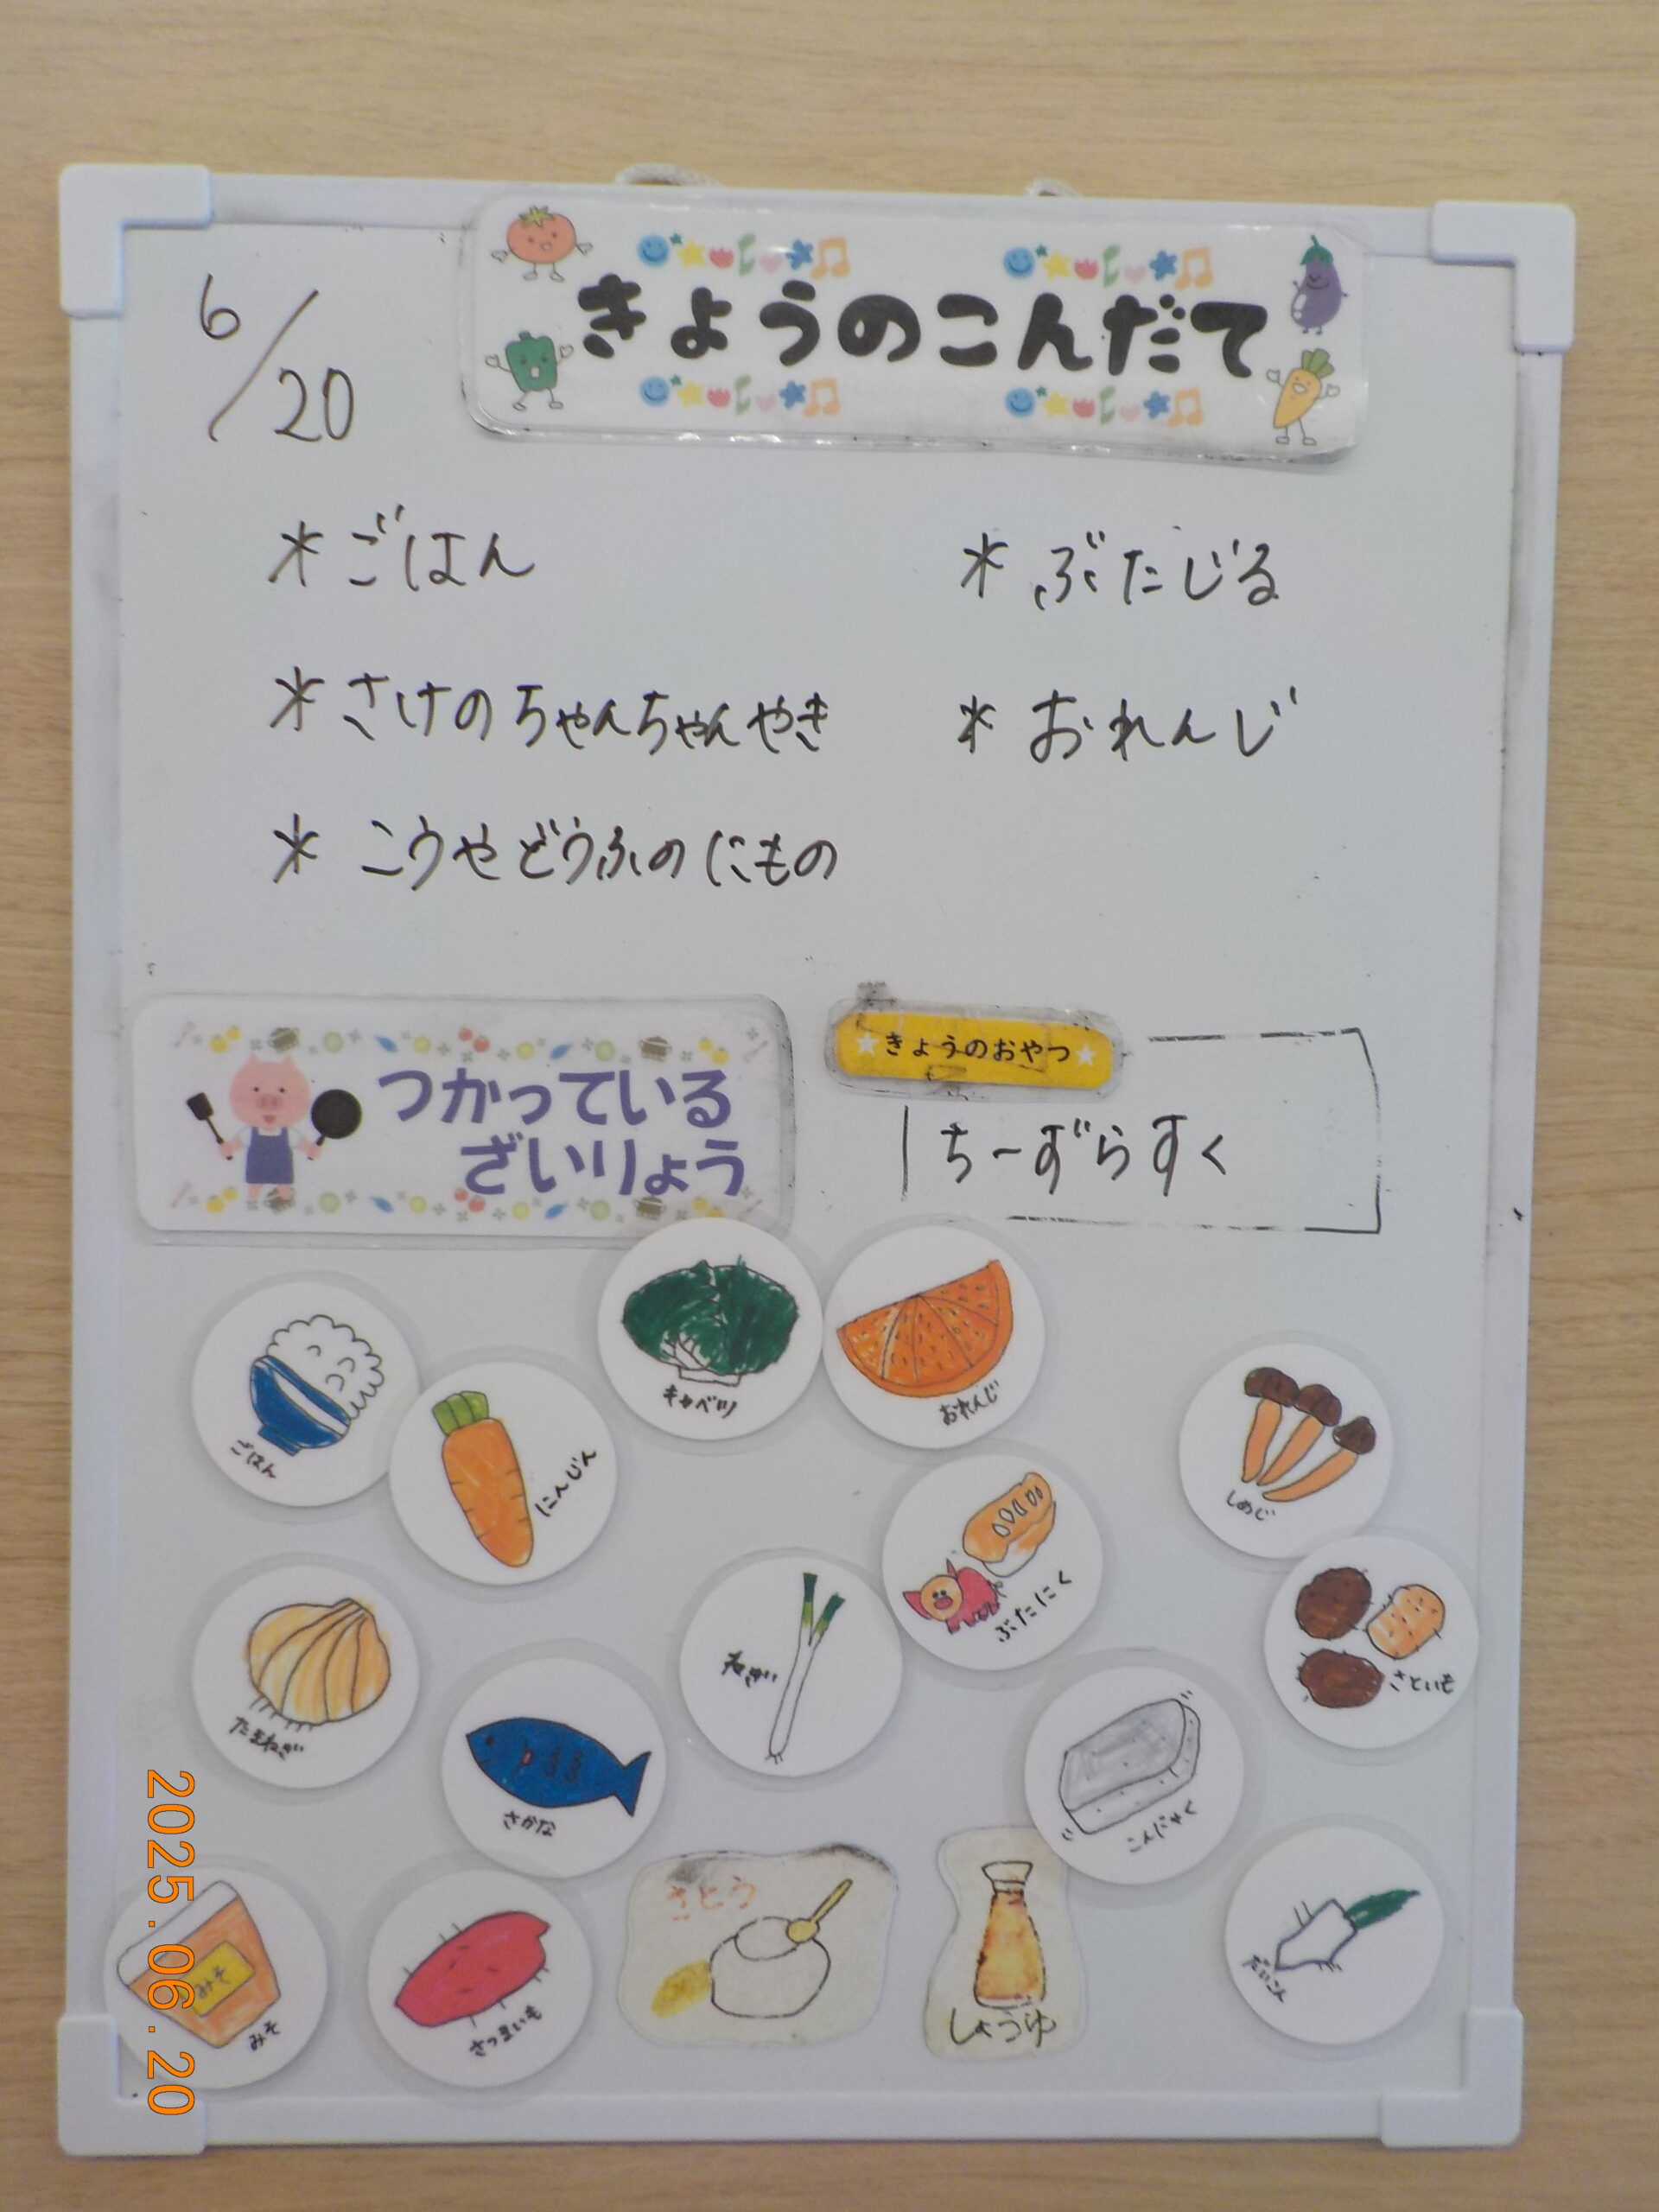 6/20
きょうのこんだて
* ごはん
* さけのちゃんちゃんやき
* こうやどうふのにもの
* ぶたじる
* おれんじ
つかっている
ざいりょう
きょうのおやつ
ちーずらすく
キャベツ
おれんじ
ごはん
にんじん
しめじ
ぶたにく
ねぎ
さといも
たまねぎ
さかな
こんにゃく
みそ
みそ
さつまいも
さとう
しょうゆ
だいこん
2025.06.20